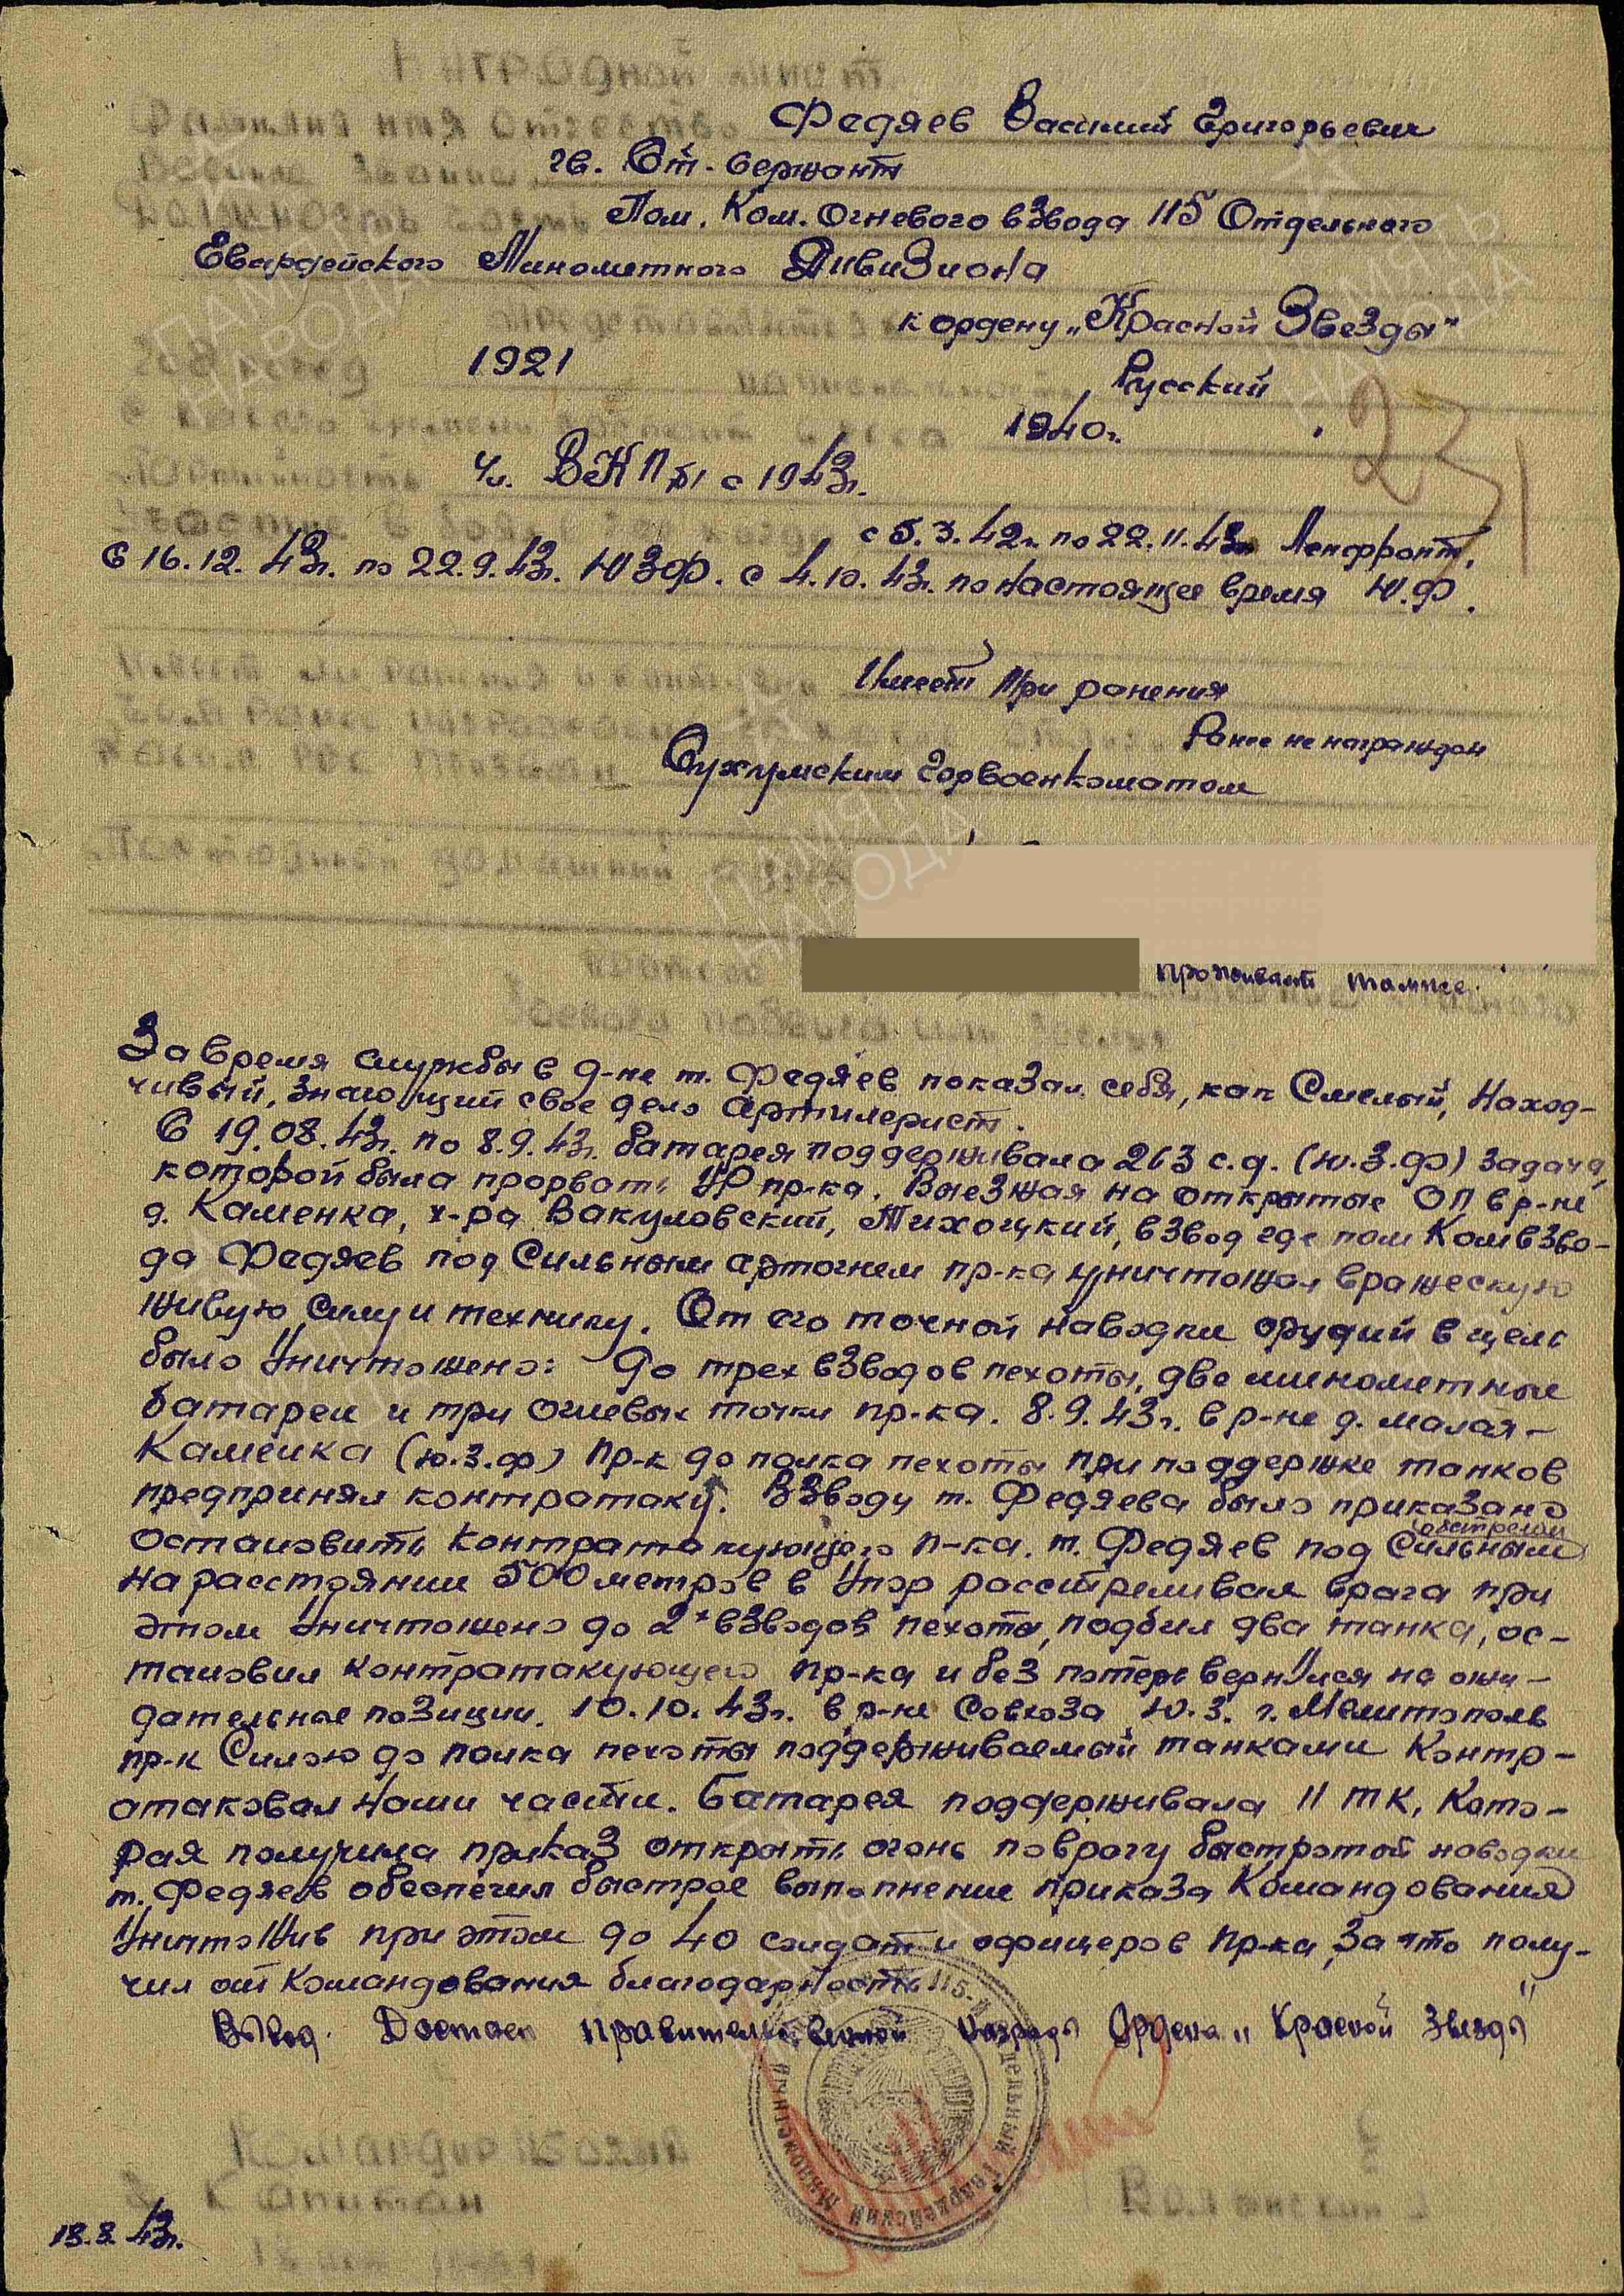 Наградной лист
Фамилия имя отчество Федяев Василий Григорьевич
Военное звание гв. Ст. Сержант
Должность часть Пом. Ком. Огневого взвода 115 Отдельного
Гвардейского Минометного Дивизиона
к ордену „Красной Звезды"
Год рожд 1921 национальность Русский
1940г.
231
Партийность Чл. ВКП б/ с 1943г.
с 5.3.42г. по 22.11.43г Ленфронт,
С 16.12.43г. по 22.9.43г. ЮЗФ. с 4.10.43г. по настоящее время Ю.Ф.
Имеет три ранения
Ранее не награжден
Сухумским Горвоенкоматом
домашний
Проживает тамже.
За время службы в д-не т. Федяев показал себя, как Смелый, Наход-
чивый, знающий свое дело Артилерист.
С 19.08.43г. по 8.9.43г. батарея поддерживала 263 с.д. (ю.з.ф) задача,
которой была прорвать УР пр-ка. Выезжая на открытые ОП в р-не
д. Каменка, х-ра Вакуловский, Тихоцкий, взвод где пом Комвзво-
да Федяев под Сильным артогнем пр-ка уничтожал вражескую
живую силу и технику. От его точной наводки орудий в цель
было Уничтожено: До трех взводов пехоты, две минометные
батареи и три огневых точки пр-ка. 8.9.43г. в р-не д. малая-
Каменка (ю.з.ф) пр-к до полка пехоты при поддержке танков
предпринял контратаку. Взводу т. Федяева было приказано
обстрелом
Остановить контратакующего п-ка. т. Федяев под Сильным
на расстоянии 500 метров в Упор расстреливая врага при
этом Уничтожено до 2х взводов пехоты, подбил два танка, ос-
тановил контратакующего пр-ка и без потерь вернулся на ожи-
дательные позиции. 10.10.43г. в р-не Совхоза Ю.З. г. Мелитополь
пр-к Силою до полка пехоты поддерживаемый танками Контр-
атаковал наши части. Батарея поддерживала 11 ТК, Кото-
рая получила приказ открыть огонь по врагу быстротой наводки
т. Федяев обеспечил быстрое выполнение приказа Командования
Уничтожив при этом до 40 солдат и офицеров пр-ка, За что полу-
чил от Командования благодарность
Вывод. Достоен правительственной награды Ордена „Красной Звезды"
115-й Отдельный Гвардейский Минометный
Командир
Капитан
18.3.43г.
ПАМЯТЬ НАРОДА